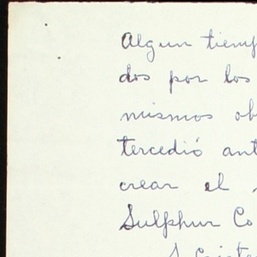 Algun tiemp
dos por los
mismos ob
tercedió ant
crear el
Sulphur Co